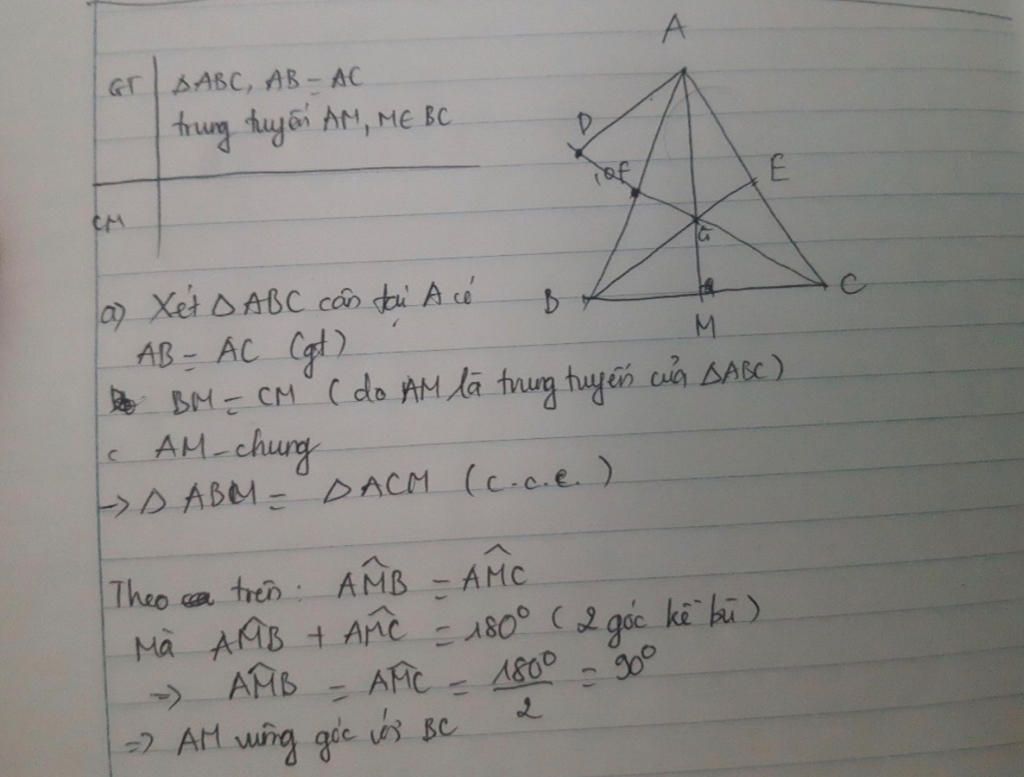 GT
ΔABC, AB = AC
trung tuyến AM, M∈ BC
CM
A
D
F
E
G
B
C
M
a) Xét ΔABC cân tại A có
AB = AC (gt)
BM = CM (do AM là trung tuyến của ΔABC)
AM-chung
-> Δ ABM = ΔACM (c.c.c.)
Theo trên: AM̂B = AM̂C
Mà AM̂B + AM̂C = 180° (2 góc kề bù)
=> AM̂B = AM̂C = 180°/2 = 90°
=> AM vuông góc với BC